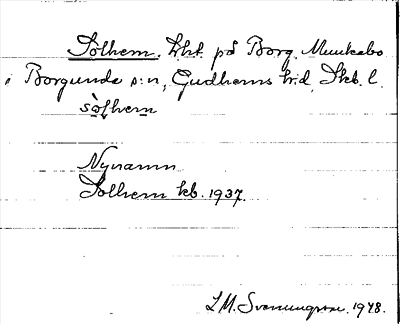 Solhem. Lht på Borg. Munkabo
i Borgunda s:n, Gudhems hd, Skb. l.
sòlhem
Nynamn
Solhem kb. 1937.
L M. Svenungsson. 1978.